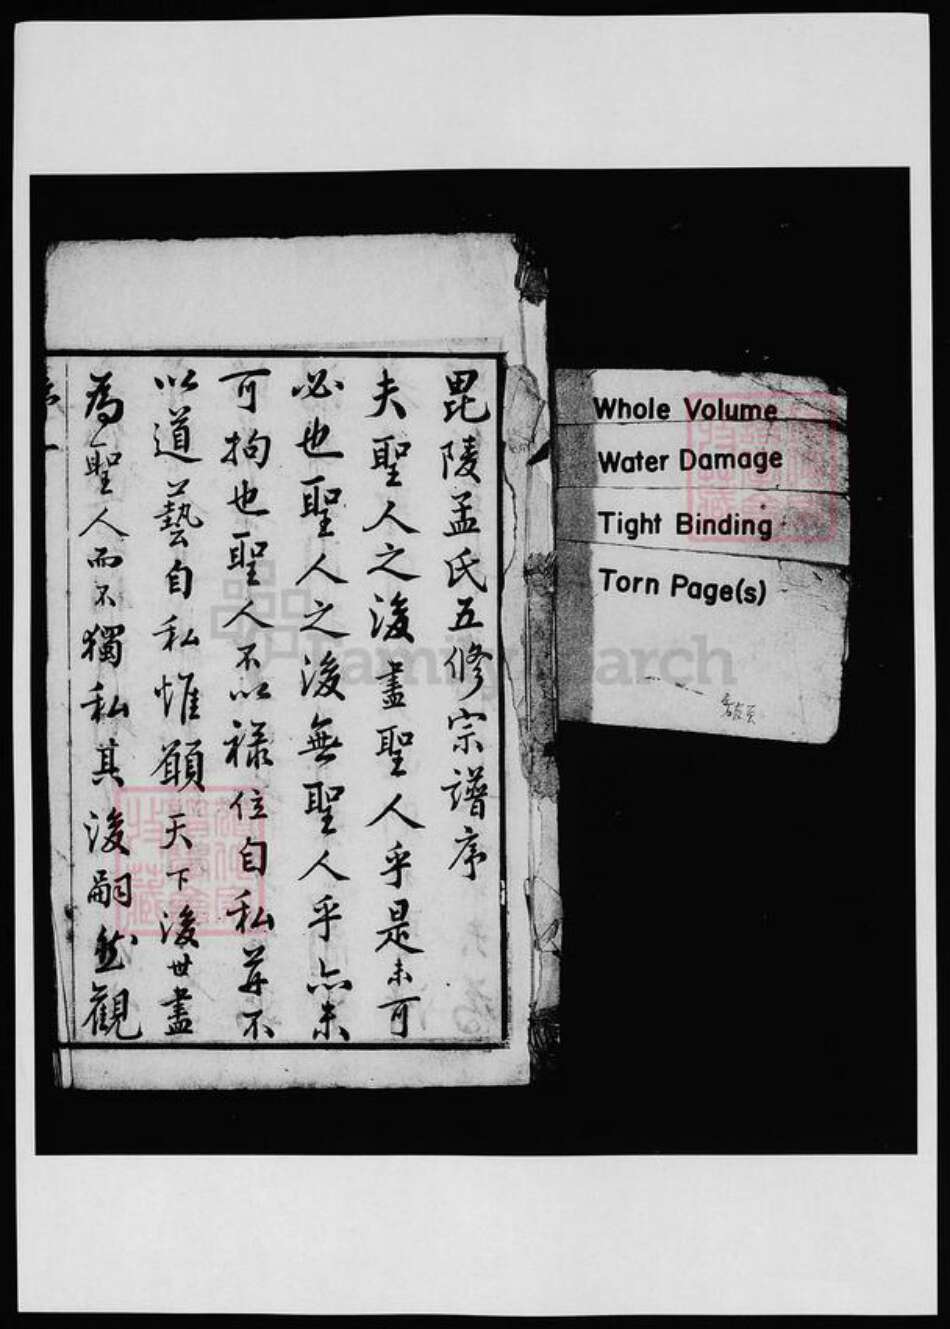 毘陵孟氏五修宗譜序
夫聖人之後盡聖人乎是未可
必也聖人之後無聖人乎亦未
可拘也聖人不以祿位自私并不
以道藝自私惟願天下後世盡
為聖人而不獨私其後嗣然觀
Whole Volume
Water Damage
Tight Binding
Torn Page(s)
FamilySearch